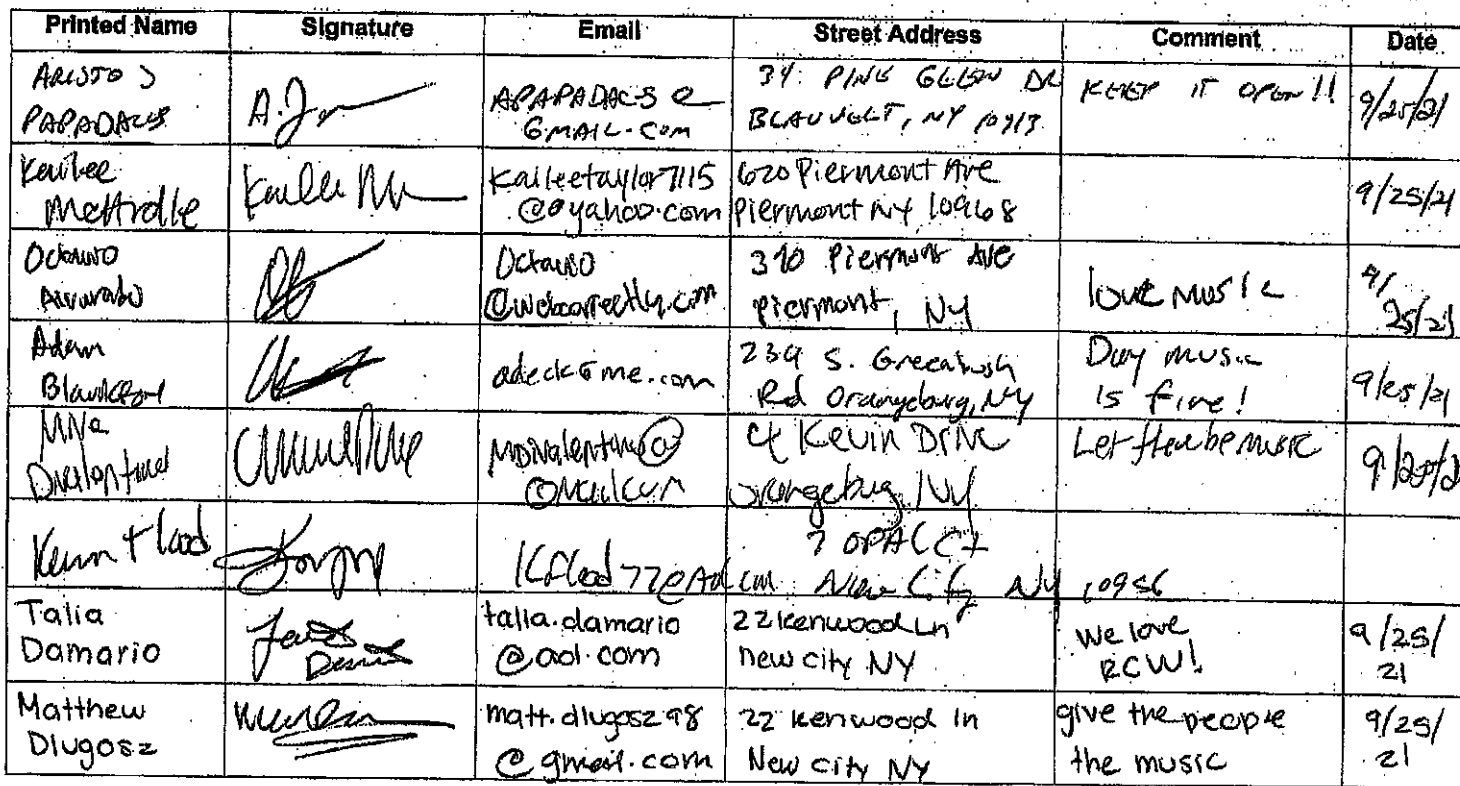 Printed Name Signature Email Street Address Comment Date
ARISTO J
PAPADACS
A.
APAPADACS @
GMAIL.COM
34 PINE GLEN DR
BLAUVELT, NY 10913
KEEP IT OPEN!!
9/25/21
Kailee
kaileetaylor7115
@yahoo.com
620 Piermont Ave
Piermont NY 10968
9/25/21
Octavio
Alvarado
Octavio
@webcorrectly.com
390 Piermont Ave
Piermont, NY
love music
9/
25/21
Adam
adeck@me.com
239 S. Greenbush
Rd Orangeburg, NY
Day music
is fine!
9/25/21
Divalentine
mdivalentine@
@
4 Kevin Drive
Orangeburg, NY
Let there be music
Kevin Flood
Kflood77@Aol.com
7 OPAL Ct
New City NY 10956
Talia
Damario
talia.damario
@aol.com
22 kenwood Ln
new city NY
we love
RCW!
9/25/
21
Matthew
Dlugosz
matt.dlugosz98
@gmail.com
22 kenwood ln
New city NY
give the people
the music
9/25/
21